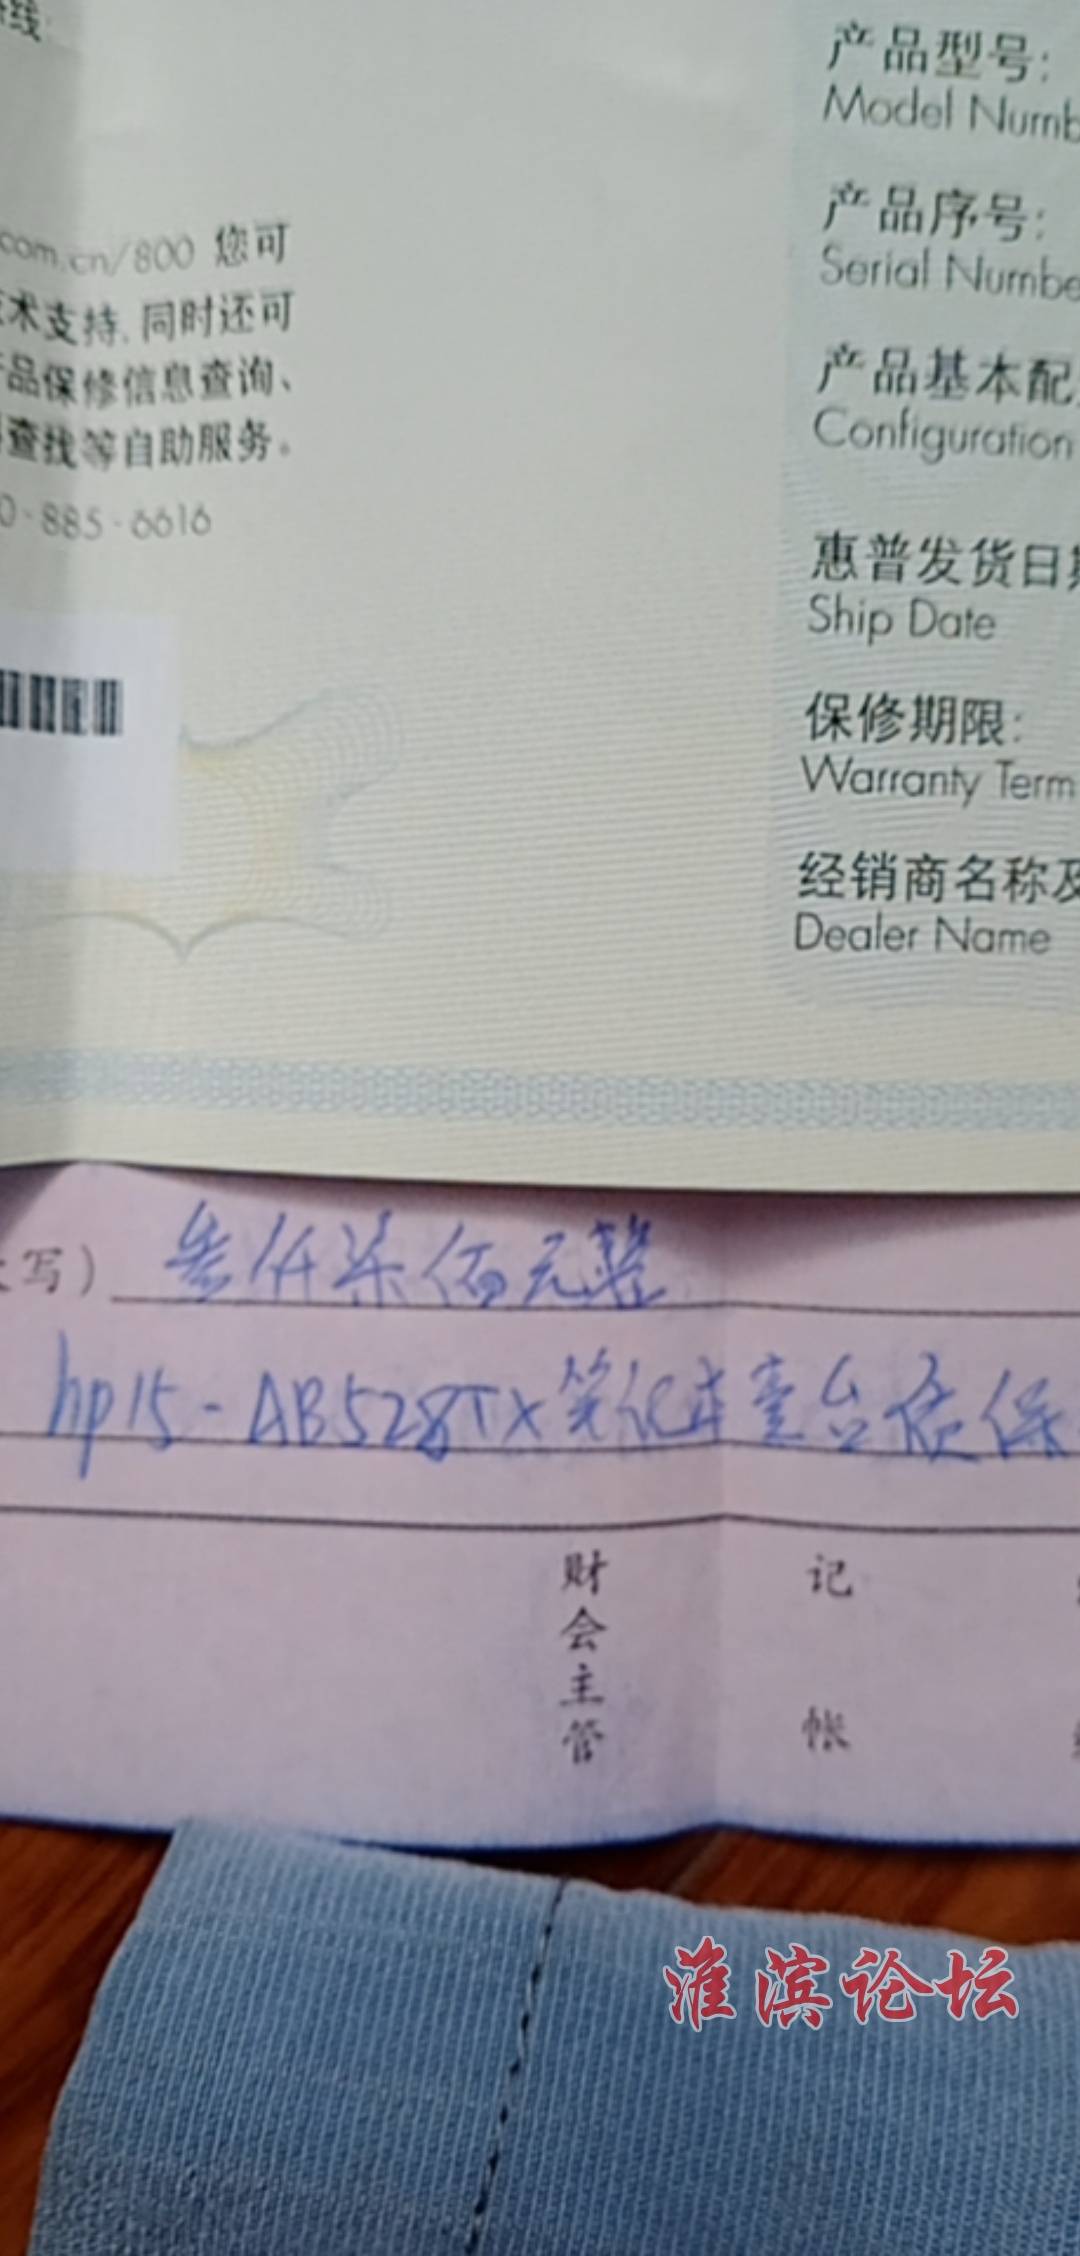 线:
com.cn/800 您可
术支持, 同时还可
品保修信息查询、
查找等自助服务。
0·885·6616
产品型号:
Model Numb
产品序号:
Serial Numbe
产品基本配
Configuration
惠普发货日期
Ship Date
保修期限:
Warranty Term
经销商名称及
Dealer Name
写) 叁仟柒佰元整
hp15-AB528TX笔记本壹台质保
财会主管
记帐
淮滨论坛